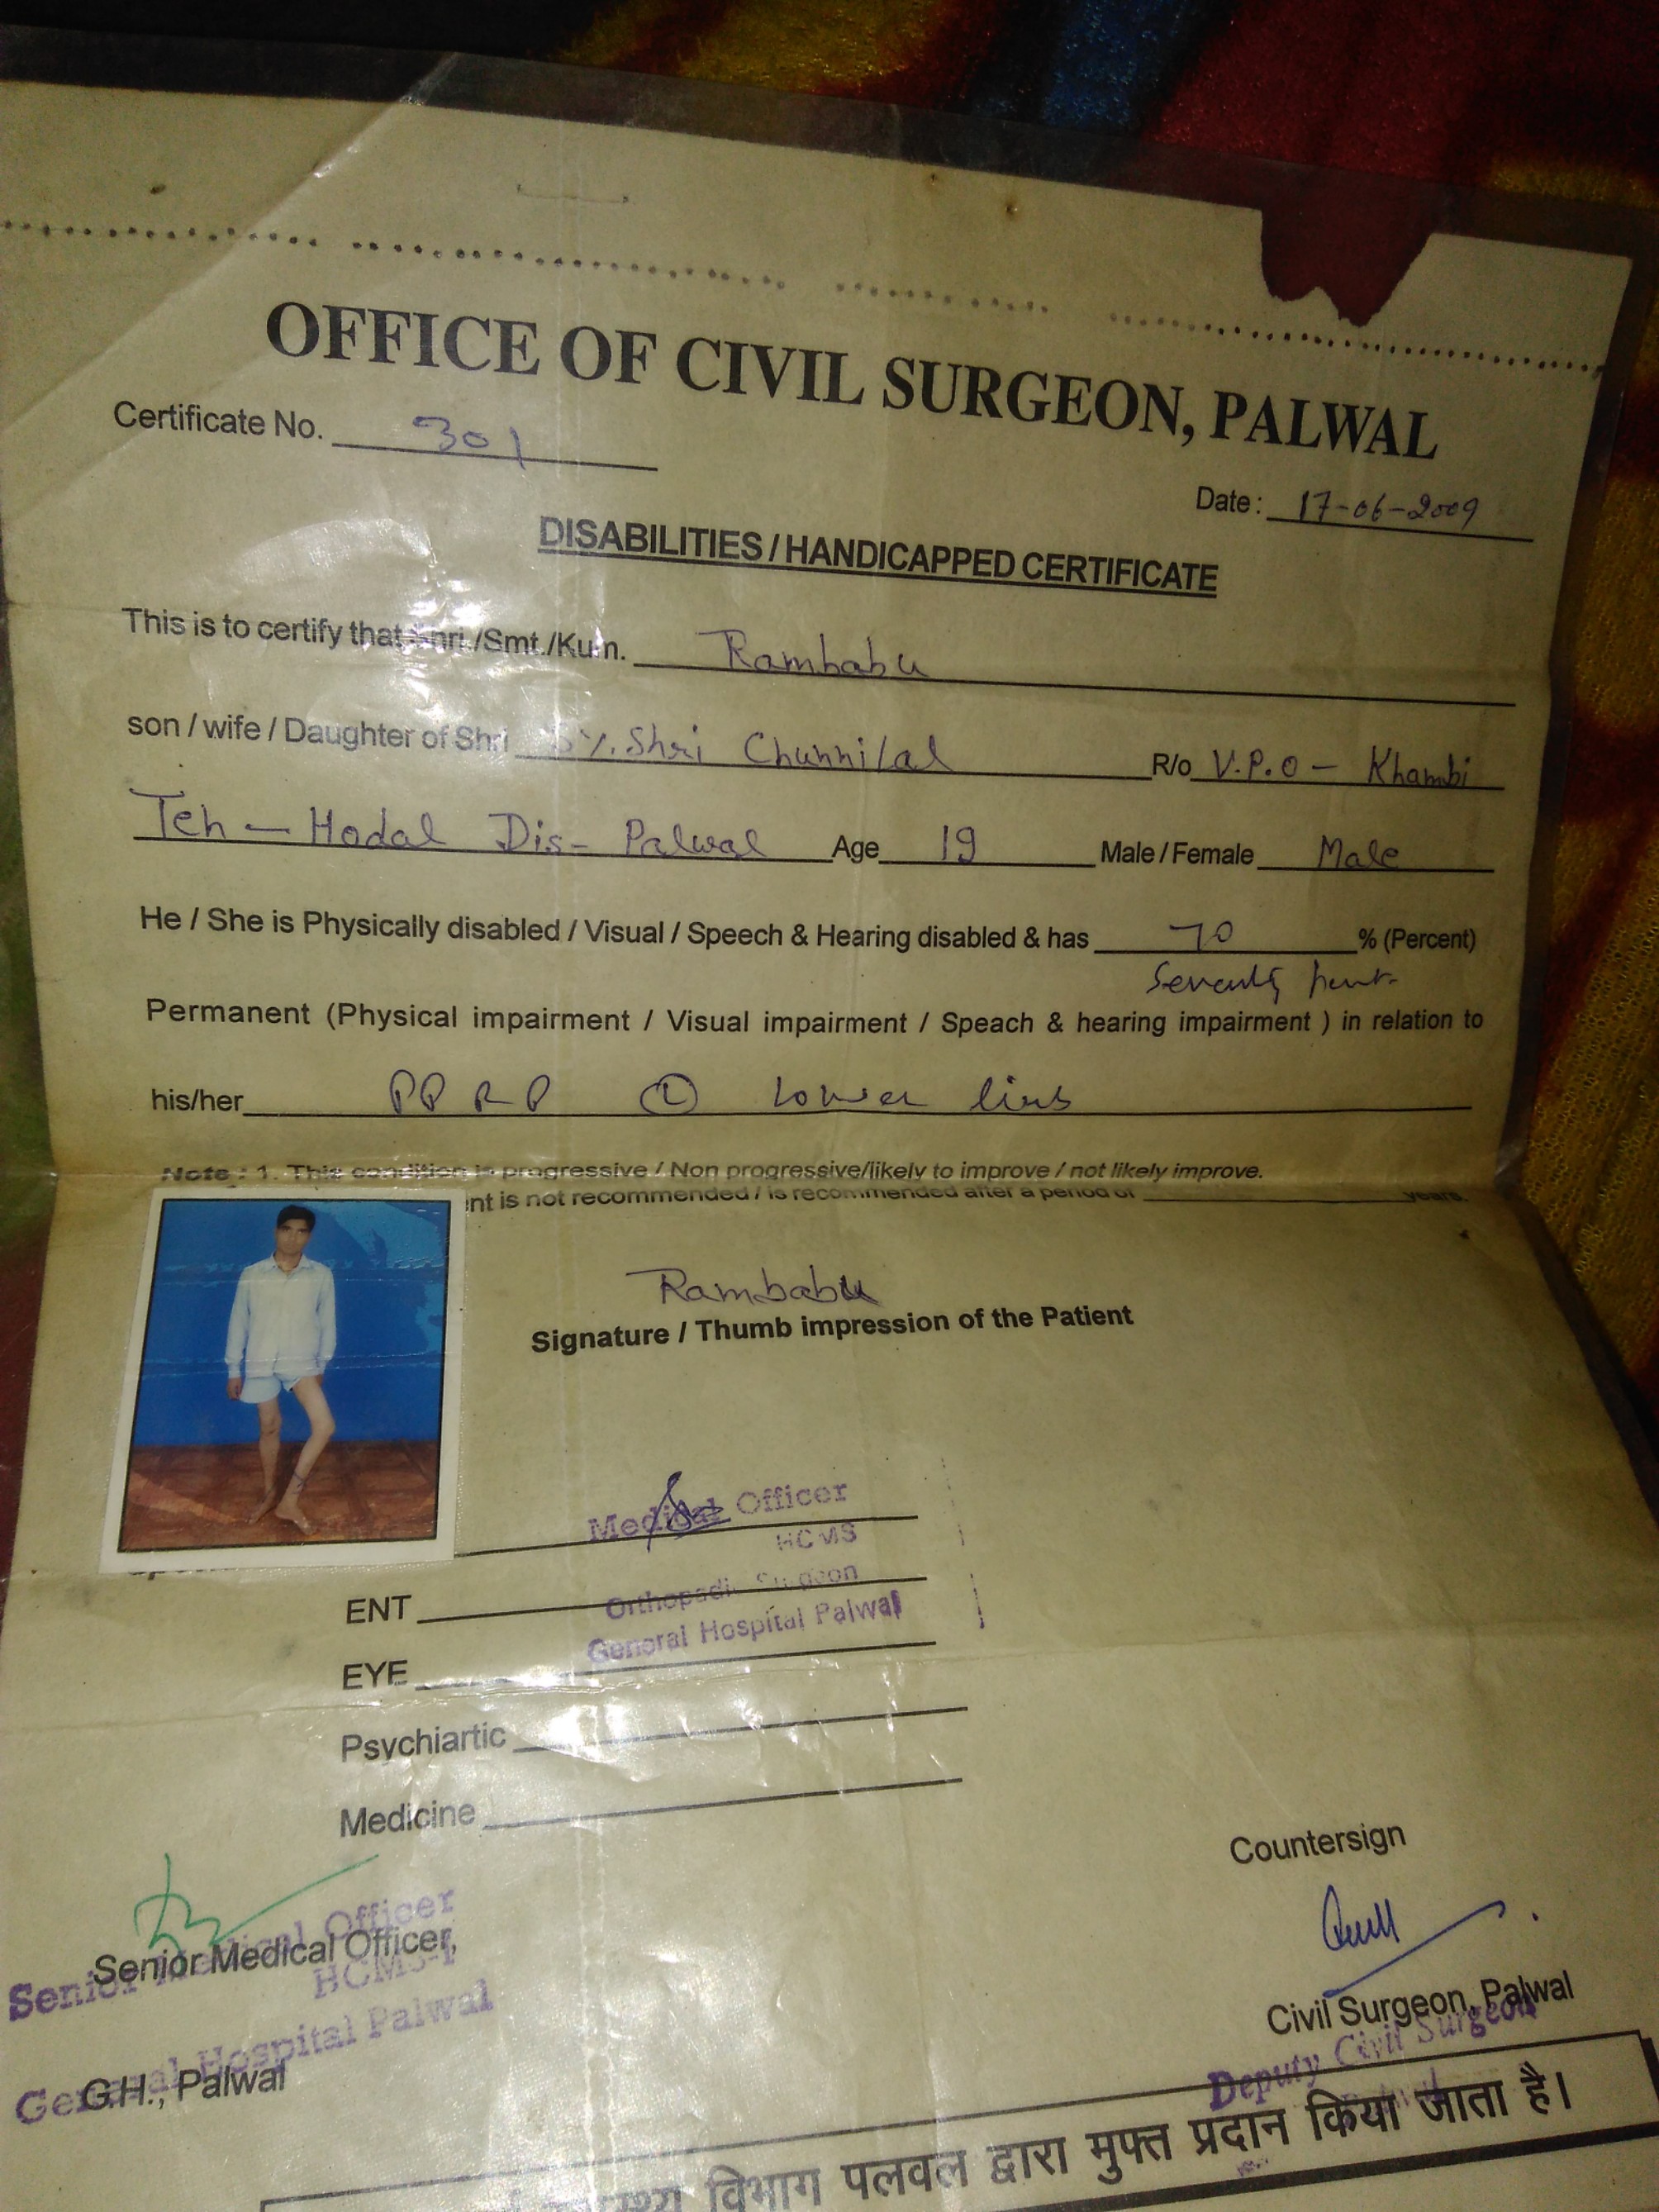 OFFICE OF CIVIL SURGEON, PALWAL
Certificate No. 301
Date: 17-06-2009
DISABILITIES / HANDICAPPED CERTIFICATE
This is to certify that Shri./Smt./Kum. Rambabu
son / wife / Daughter of Shri S/. Shri Chunnilal R/o V.P.O - Khambi
Teh - Hodal Dis- Palwal Age 19 Male / Female Male
He / She is Physically disabled / Visual / Speech & Hearing disabled & has 70 % (Percent)
Seventy
Permanent (Physical impairment / Visual impairment / Speach & hearing impairment ) in relation to
his/her PPRP (L) lower limb
Note : 1. This condition is progressive / Non progressive/likely to improve / not likely improve.
nt is not recommended / is recommended after a period of years.
Rambabu
Signature / Thumb impression of the Patient
Medical Officer
HCMS
Orthopadic Surgeon
General Hospital Palwal
ENT
EYE
Psychiartic
Medicine
Countersign
Senior Medical Officer,
Senior Medical Officer
HCMS-I
General Hospital Palwal
G.H., Palwal
Civil Surgeon, Palwal
Deputy Civil Surgeon
विभाग पलवल द्वारा मुफ्त प्रदान किया जाता है।